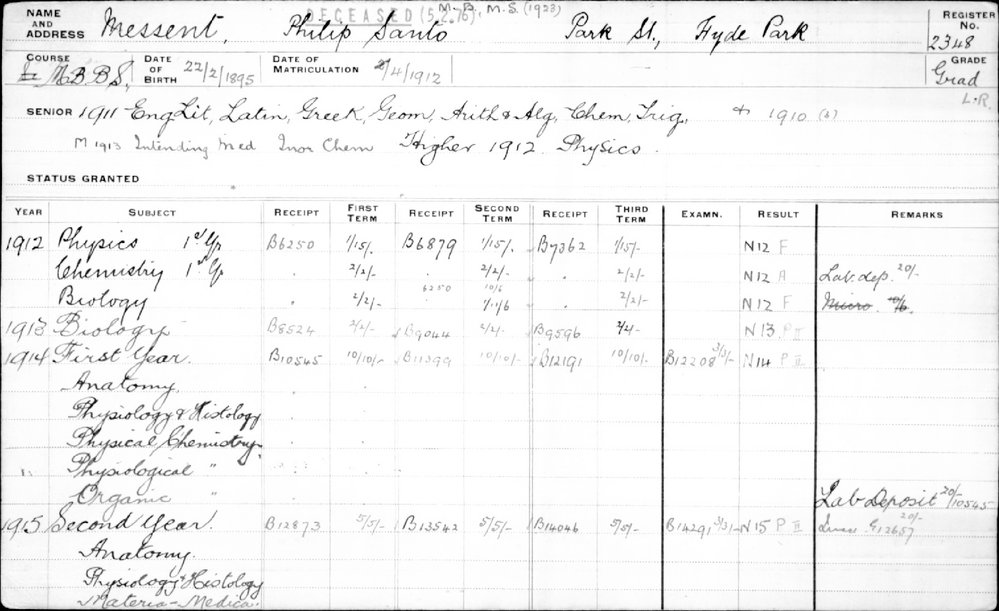 DECEASED (5.2.76) M.D., M.S. (1923)
NAME AND ADDRESS Messent, Philip Santo Park St., Hyde Park REGISTER No. 2348
COURSE M.B.B.S. DATE OF BIRTH 22/2/1895 DATE OF MATRICULATION /4/1912 GRADE Grad
L.R.
SENIOR 1911 Eng Lit, Latin, Greek, Geom, Arith & Alg, Chem, Trig, & 1910
M 1913 Intending Med Inor Chem Higher 1912. Physics.
STATUS GRANTED
YEAR SUBJECT RECEIPT FIRST TERM RECEIPT SECOND TERM RECEIPT THIRD TERM EXAMN. RESULT REMARKS
1912 Physics 1st Yr B6250 1/15/- B6879 1/15/- B7362 1/15/- N12 F
Chemistry 1st Yr 2/2/- 2/2/- 2/2/- N12 A Lab. dep. 20/-
Biology 2/2/- 6250 10/6 1/11/6 2/2/- N12 F Micro. 10/6.
1913 Biology B8524 2/2/- B9044 2/2/- B9596 2/2/- N13 P II
1914 First Year. B10545 10/10/- B11399 10/10/- B12191 10/10/- B12208 3/3/- N14 P II
Anatomy.
Physiology & Histology
Physical Chemistry.
Physiological "
Organic " Lab Deposit 20/- 10545
1915 Second Year. B12873 5/5/- B13542 5/5/- B14046 5/5/- B14291 3/3/- N15 P II 20/- G12657
Anatomy.
Physiology & Histology
Materia-Medica.